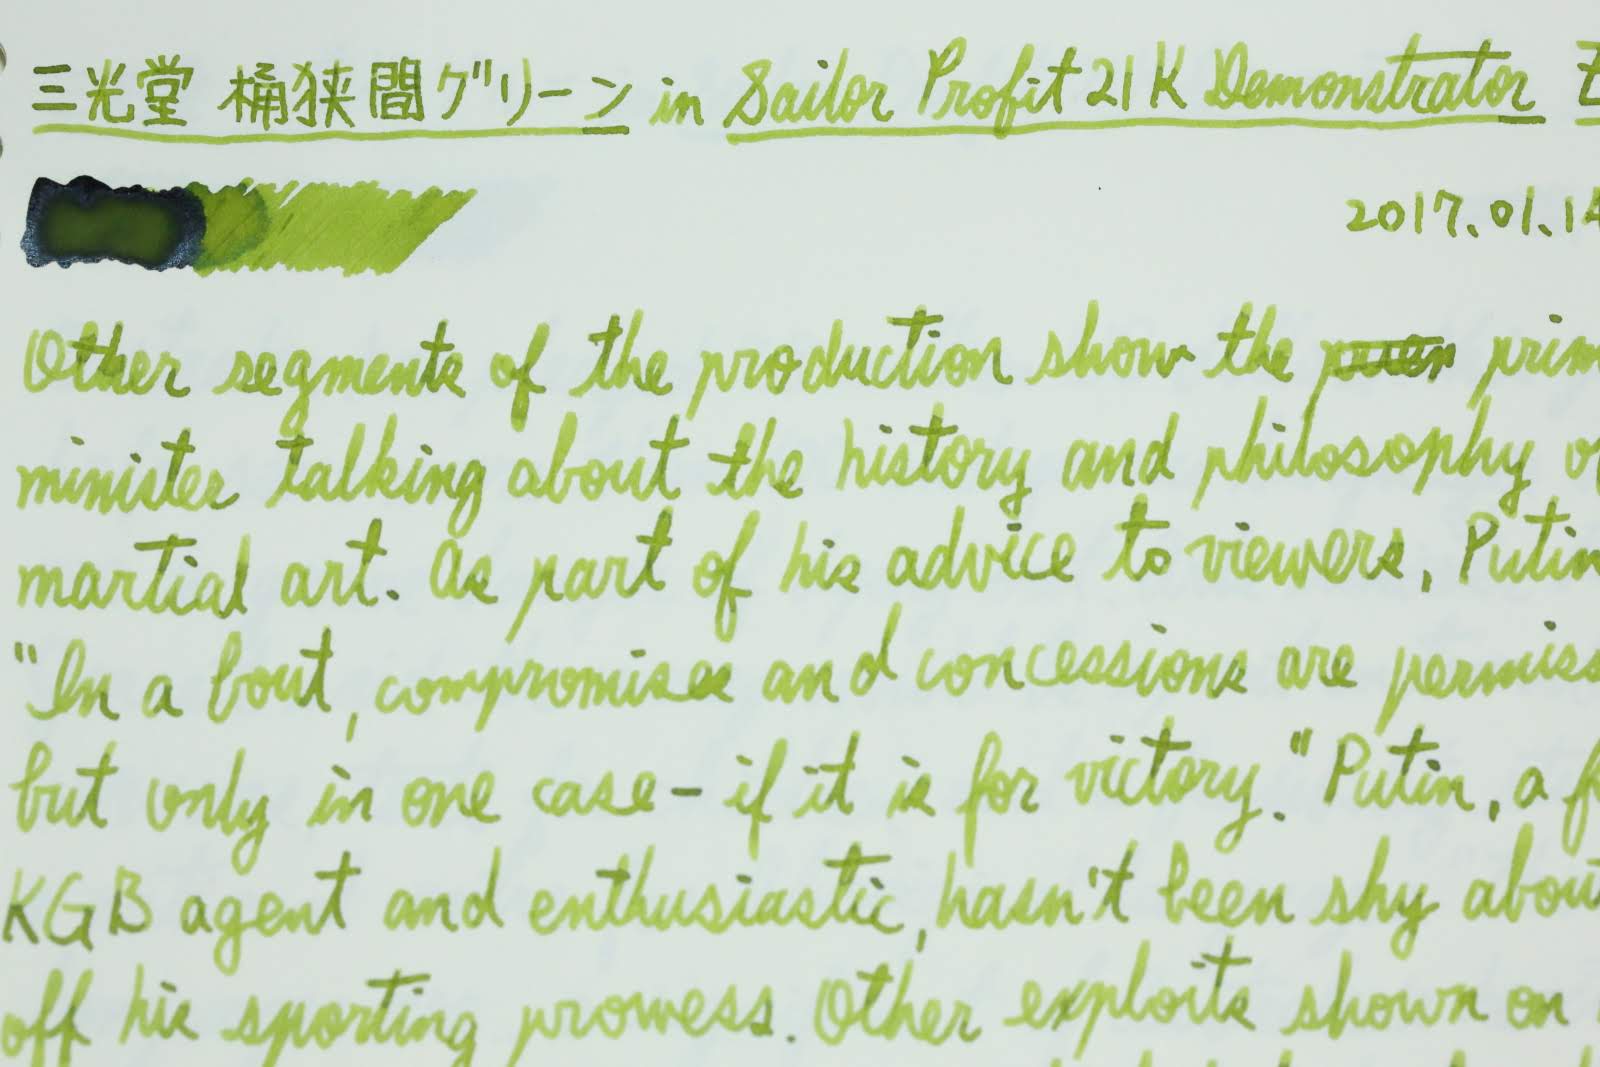 三光堂 桶狭間グリーン in Sailor Profit 21K Demonstrator
2017.01.14
Other segments of the production show the prim
minister talking about the history and philosophy of
martial art. As part of his advice to viewers, Putin
"In a bout, compromises and concessions are permiss
but only in one case - if it is for victory." Putin, a f
KGB agent and enthusiastic, hasn't been shy about
off his sporting prowess. Other exploits shown on